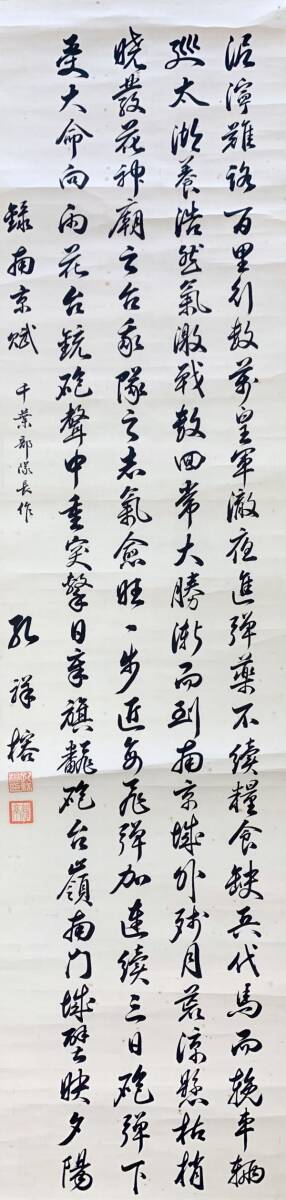 泥濘難路百里行数万皇軍徹夜進弾薬不續糧食缺兵代馬而挽車輌
廵太湖養浩然氣激戦数回常大勝漸而到南京城外残月荒涼懸枯梢
暁發花神廟之台我隊之志氣愈旺一歩近毎飛弾加連續三日砲弾下
受大命向雨花台銃砲聲中重突撃日章旗飜砲台嶺南门城壁映夕陽
録南京賦 千葉部隊長作
孔祥榕